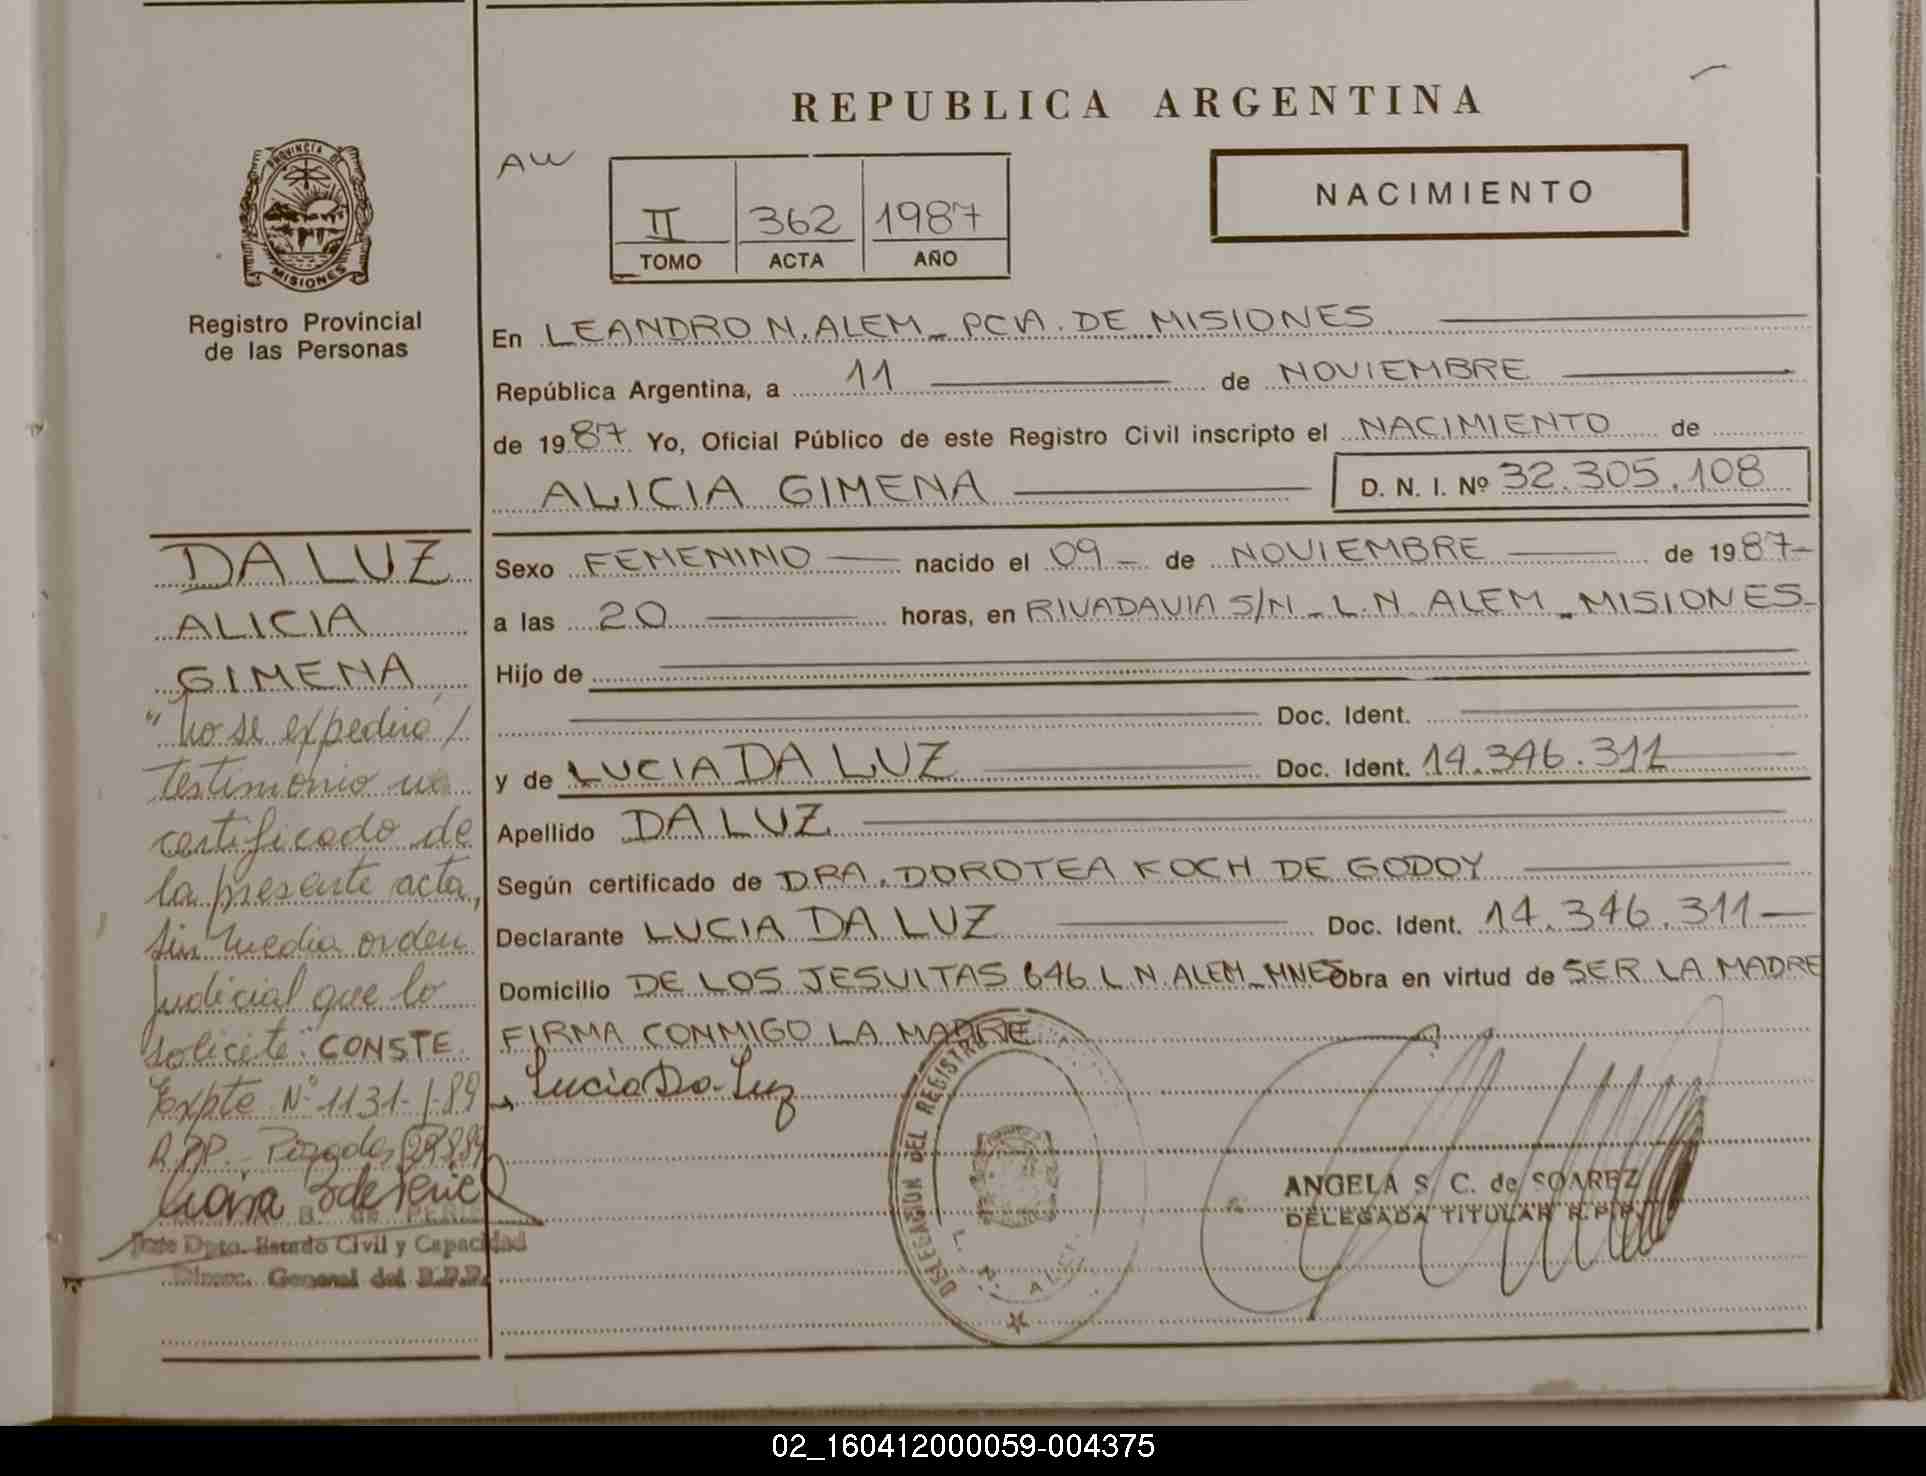 REPUBLICA ARGENTINA
PROVINCIA DE
MISIONES
Registro Provincial
de las Personas
AW
II 362 1987
TOMO ACTA AÑO
NACIMIENTO
En LEANDRO N. ALEM - PCIA. DE MISIONES
República Argentina, a 11 de NOVIEMBRE
de 1987 Yo, Oficial Público de este Registro Civil inscripto el NACIMIENTO de
ALICIA GIMENA D. N. I. Nº 32.305.108
Sexo FEMENINO nacido el 09 - de NOVIEMBRE de 1987-
a las 20 horas, en RIVADAVIA S/N - L.N. ALEM - MISIONES-
Hijo de
Doc. Ident.
y de LUCIA DA LUZ Doc. Ident. 14.346.311
Apellido DA LUZ
Según certificado de DRA. DOROTEA KOCH DE GODOY
Declarante LUCIA DA LUZ Doc. Ident. 14.346.311
Domicilio DE LOS JESUITAS 646 L N. ALEM - MNES Obra en virtud de SER LA MADRE
FIRMA CONMIGO LA MADRE
Lucia Da Luz
DELEGACION DEL REGISTRO
L. N. ALEM
ANGELA S. C. de SOAREZ
DELEGADA TITULAR R.P.P.
DA LUZ
ALICIA
GIMENA
"no se expedira /
testimonio ni
certificado de
la presente acta,
sin media orden
judicial que lo
solicite". CONSTE.
Expte Nº 1131-/-89
R.P.P. - Posadas
B. de
Dpto. Estado Civil y Capacidad
General del R.P.P.
02_160412000059-004375